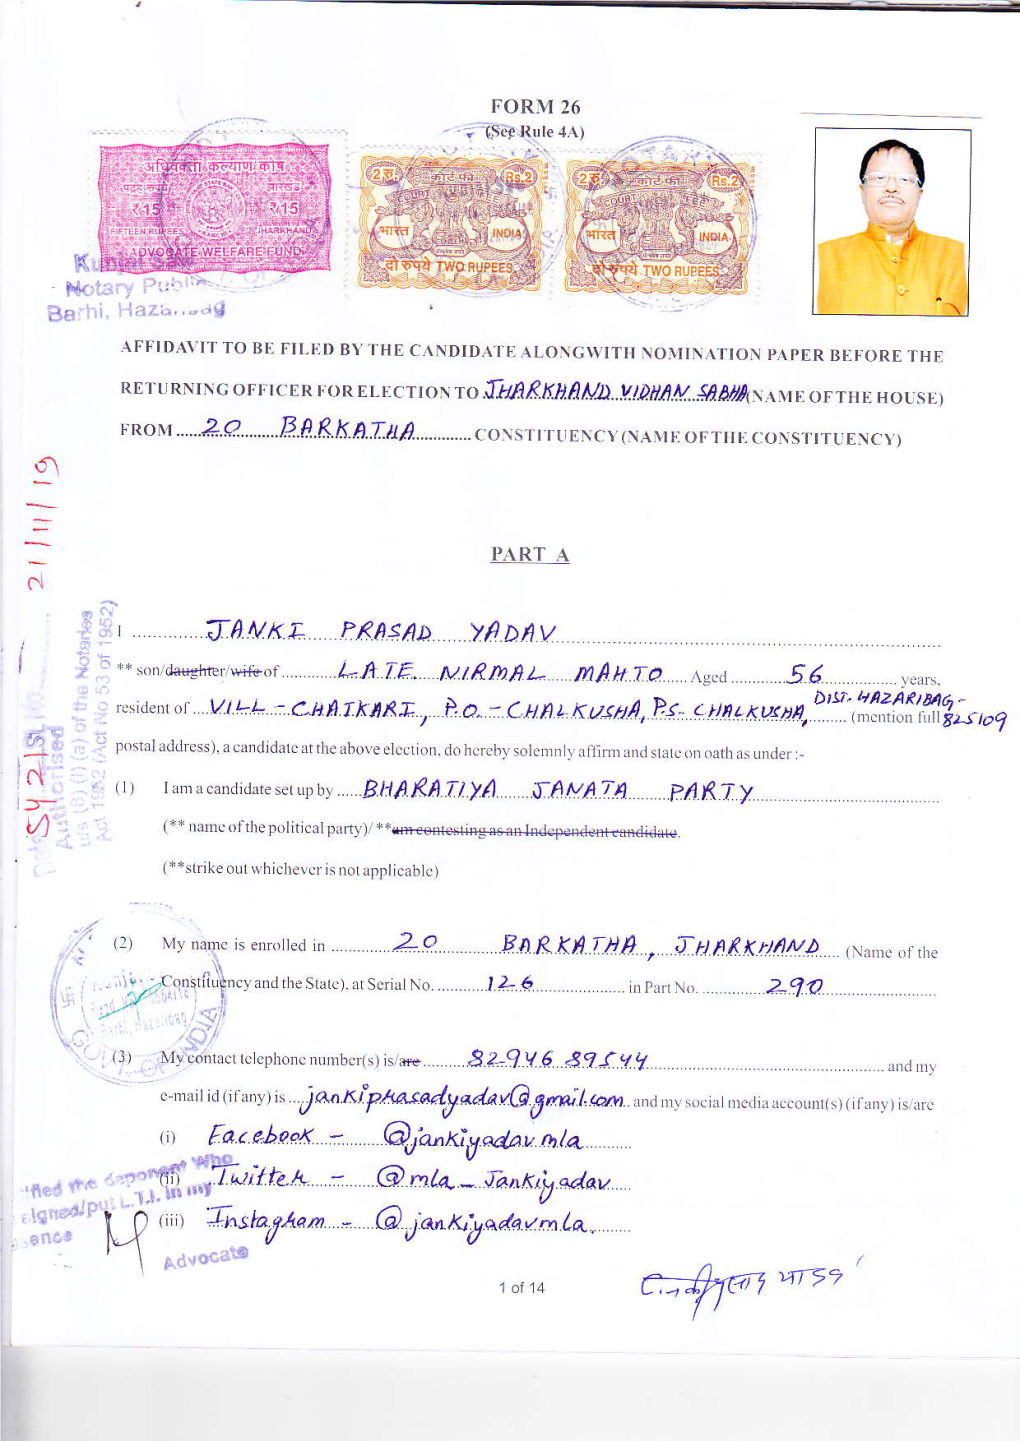 FORM 26
(See Rule 4A)
अधिवक्ता कल्याण कोष
झारखंड
₹15 ₹15
FIFTEEN RUPEES JHARKHAND
ADVOCATE WELFARE FUND
2 रु. कोर्ट फी Rs.2
COURT FEE
भारत INDIA
दो रुपये TWO RUPEES
2 रु. कोर्ट फी Rs.2
COURT FEE
भारत INDIA
दो रुपये TWO RUPEES
Notary Public
Barhi, Hazaribag
AFFIDAVIT TO BE FILED BY THE CANDIDATE ALONGWITH NOMINATION PAPER BEFORE THE
RETURNING OFFICER FOR ELECTION TO JHARKHAND VIDHAN SABHA (NAME OF THE HOUSE)
FROM ..... 20 BARKATHA ............. CONSTITUENCY (NAME OF THE CONSTITUENCY)
21/11/19
PART A
I ............. JANKI PRASAD YADAV
** son/daughter/wife of ............ LATE NIRMAL MAHTO ..... Aged ............ 56 ................ years,
DIST- HAZARIBAG -
resident of .... VILL - CHATKARI, P.O. - CHALKUSHA, P.S- CHALKUSHA, ......... (mention full 825109
postal address), a candidate at the above election, do hereby solemnly affirm and state on oath as under :-
(1) I am a candidate set up by ..... BHARATIYA JANATA PARTY
(** name of the political party)/ **am contesting as an Independent candidate.
(**strike out whichever is not applicable)
Authorised
u/s (8) (I) (a) of the Notaries
Act 1952 (Act No 53 of 1952)
(2) My name is enrolled in ............. 20 BARKATHA, JHARKHAND ..... (Name of the
Constituency and the State), at Serial No. ............ 126 ..................... in Part No. ............... 290
GOVT. OF INDIA
(3) My contact telephone number(s) is/are .......... 82946 89544 ........ and my
e-mail id (if any) is .... jankiprasadyadav@gmail.com.. and my social media account(s) (if any) is/are
(i) Facebook - @jankiyadav.mla
(ii) Twitter - @mla_Jankiyadav
(iii) Instagram - @jankiyadavmla
the deponent Who
signed/put L.T.I. in my
Advocate
1 of 14